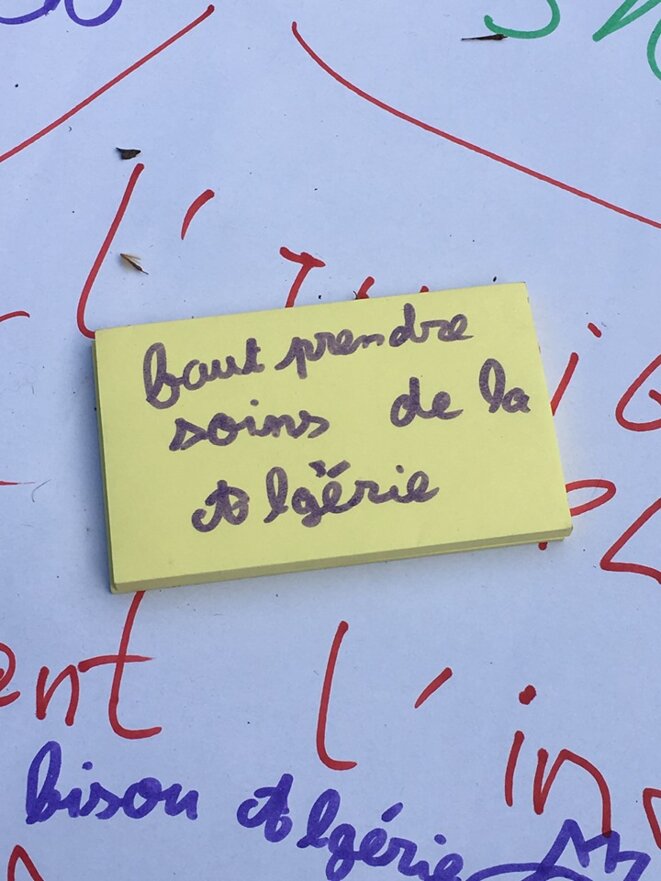 l'
faut prendre
soins de la
Algérie
ent l'in
bison Algérie